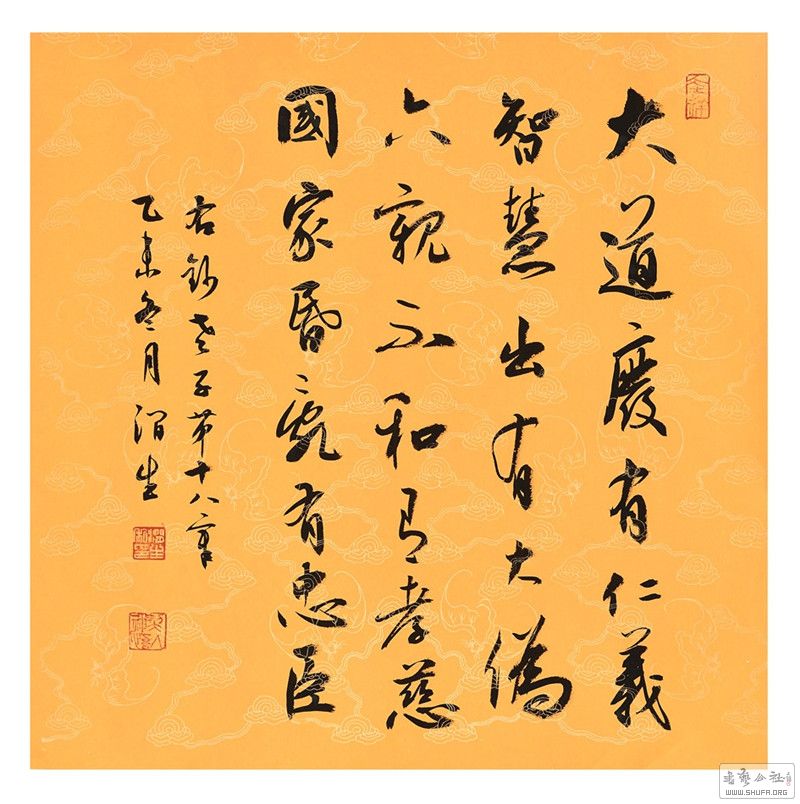 大道廢有仁義
智慧出有大偽
六親不和有孝慈
國家昏亂有忠臣
右錄老子第十八章
乙未冬月渭生
書藝公社
WWW.SHUFA.ORG